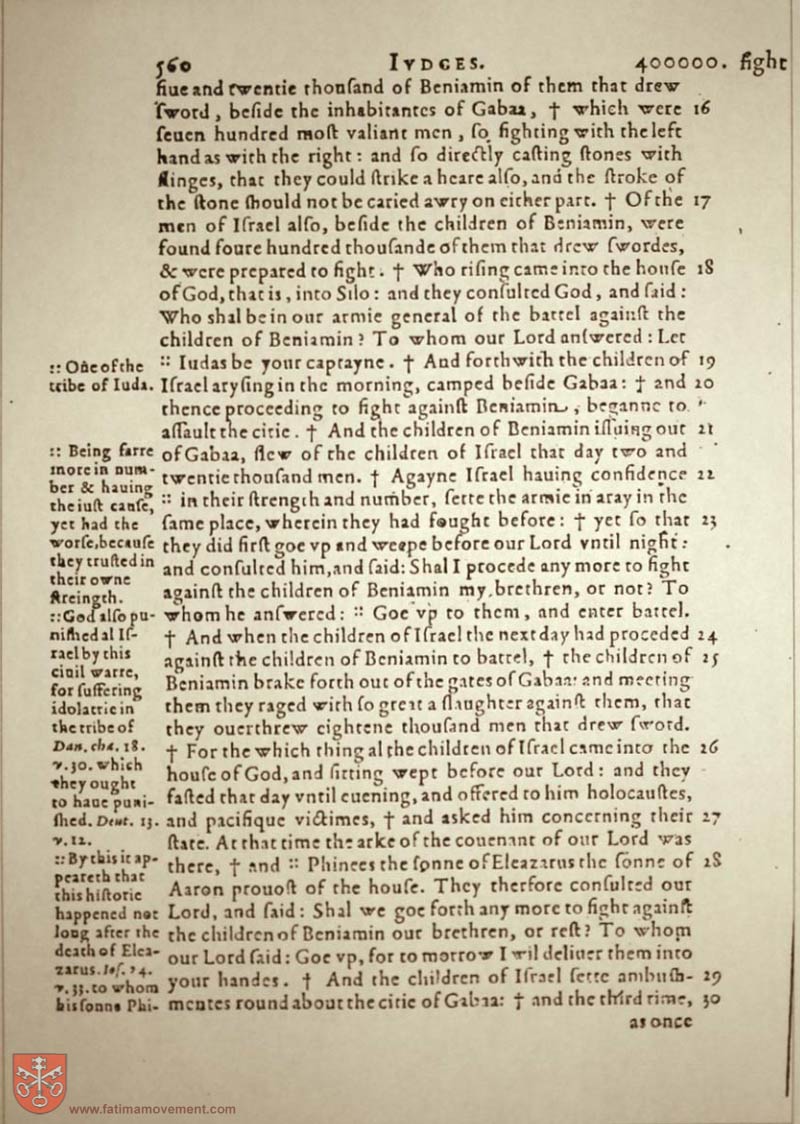 560 IVDGES. 400000. fight
fiue and twentie thouſand of Beniamin of them that drew
ſword, beſide the inhabitantes of Gabaa, † which were 16
ſeuen hundred moſt valiant men, ſo fighting with the left
hand as with the right: and ſo directly caſting ſtones with
ſlinges, that they could ſtrike a heare alſo, and the ſtroke of
the ſtone ſhould not be caried awry on either part. † Of the 17
men of Iſrael alſo, beſide the children of Beniamin, were
found foure hundred thouſande of them that drew ſwordes,
& were prepared to fight. † Who riſing came into the houſe 18
of God, that is, into Silo: and they conſulted God, and ſaid:
Who shal be in our armie general of the battel againſt the
children of Beniamin? To whom our Lord anſwered: Let
:: Iudas be your captayne. † And forthwith the children of 19
Iſrael aryſing in the morning, camped beſide Gabaa: † and 20
thence proceeding to fight againſt Beniamin, beganne to
aſſault the citie. † And the children of Beniamin iſſuing out 21
of Gabaa, ſlew of the children of Iſrael that day two and
twentie thouſand men. † Agayne Iſrael hauing confidence 22
:: in their ſtrength and number, ſette the armie in aray in the
ſame place, wherein they had fought before: † yet ſo that 23
they did firſt goe vp and weepe before our Lord vntil night:
and conſulted him, and ſaid: Shal I procede any more to fight
againſt the children of Beniamin my brethren, or not? To
whom he anſwered: :: Goe vp to them, and enter battel.
† And when the children of Iſrael the next day had proceded 24
againſt the children of Beniamin to battel, † the children of 25
Beniamin brake forth out of the gates of Gabaa: and meeting
them they raged with ſo great a ſlaughter againſt them, that
they ouerthrew eightene thouſand men that drew ſword.
† For the which thing al the children of Iſrael came into the 26
houſe of God, and ſitting wept before our Lord: and they
faſted that day vntil euening, and offered to him holocauſtes,
and pacifique victimes, † and asked him concerning their 27
ſtate. At that time the arke of the couenant of our Lord was
there, † and :: Phinees the ſonne of Eleazarus the ſonne of 28
Aaron prouoſt of the houſe. They therfore conſulted our
Lord, and ſaid: Shal we goe forth any more to fight againſt
the children of Beniamin our brethren, or reſt? To whom
our Lord ſaid: Goe vp, for to morrow I wil deliuer them into
your handes. † And the children of Iſrael ſette ambuſh- 29
mentes round about the citie of Gabaa: † and the third time, 30
as once
:: One of the
tribe of Iuda.
:: Being farre
more in num-
ber & hauing
the iuſt cauſe,
yet had the
worſe, becauſe
they truſted in
their owne
ſtreingth.
:: God alſo pu-
niſhed al Iſ-
rael by this
ciuil warre,
for ſuffering
idolatrie in
the tribe of
Dan. cha. 18.
v. 30. which
they ought
to haue puni-
ſhed. Deut. 13.
v. 12.
:: By this it ap-
peareth that
this hiſtorie
happened not
long after the
death of Elea-
zarus. Ioſ. 24.
v. 33. to whom
his ſonne Phi-
www.fatimamovement.com